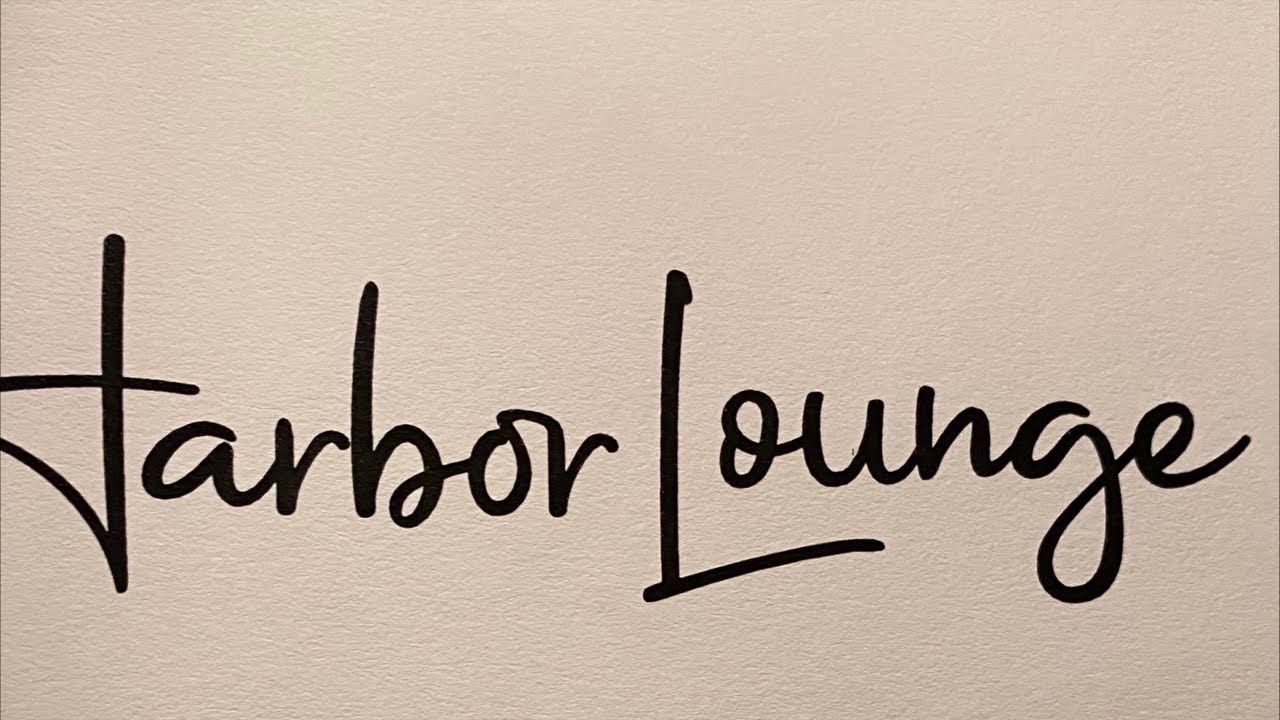 Harbor Lounge